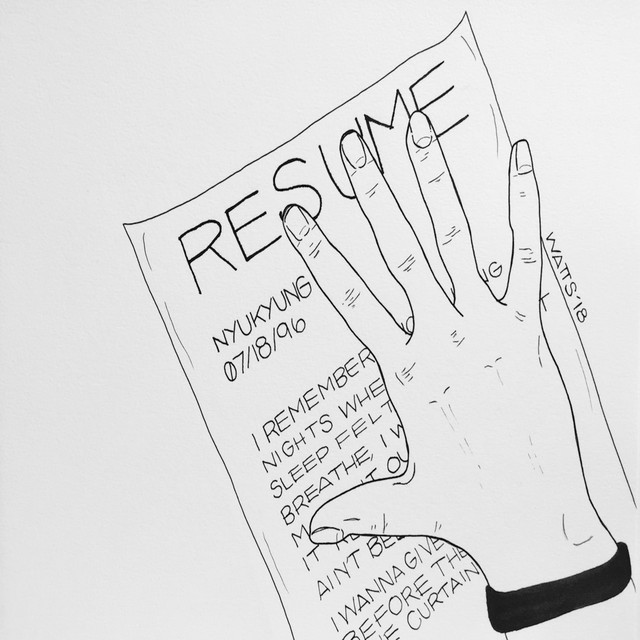 RESUME
NYUKYUNG
07/18/96
I REMEMBER
NIGHTS WHE
SLEEP FELT
BREATHE, I W
M
IT
AIN'T BE
I WANNA GIVE
BEFORE THE
CURTAIN
WATTS '18